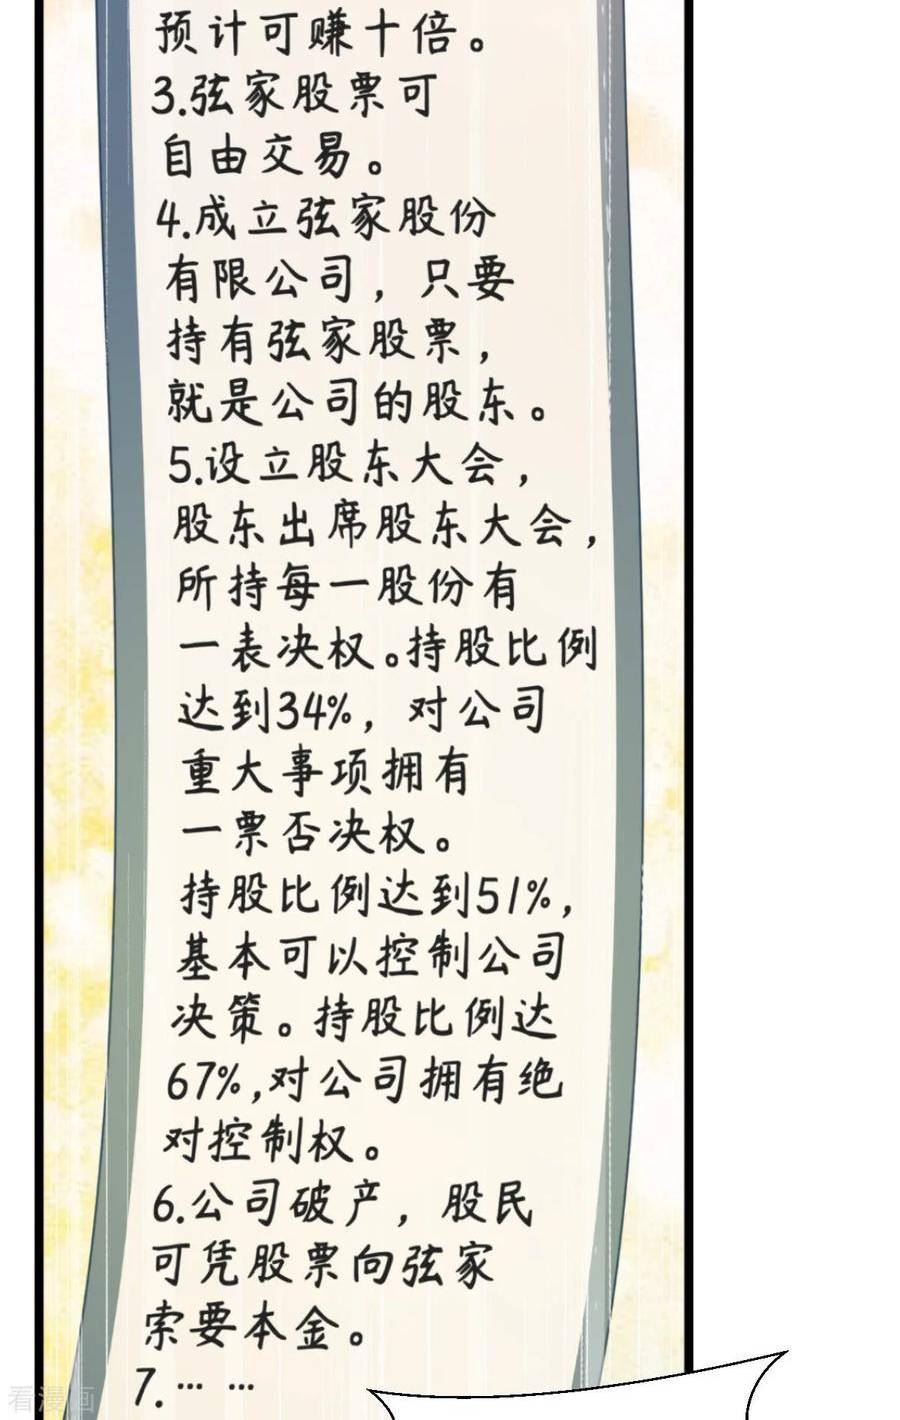 预计可赚十倍。
3.弦家股票可
自由交易。
4.成立弦家股份
有限公司，只要
持有弦家股票，
就是公司的股东。
5.设立股东大会，
股东出席股东大会，
所持每一股份有
一表决权。持股比例
达到34%，对公司
重大事项拥有
一票否决权。
持股比例达到51%，
基本可以控制公司
决策。持股比例达
67%,对公司拥有绝
对控制权。
6.公司破产，股民
可凭股票向弦家
索要本金。
7.……
看漫画